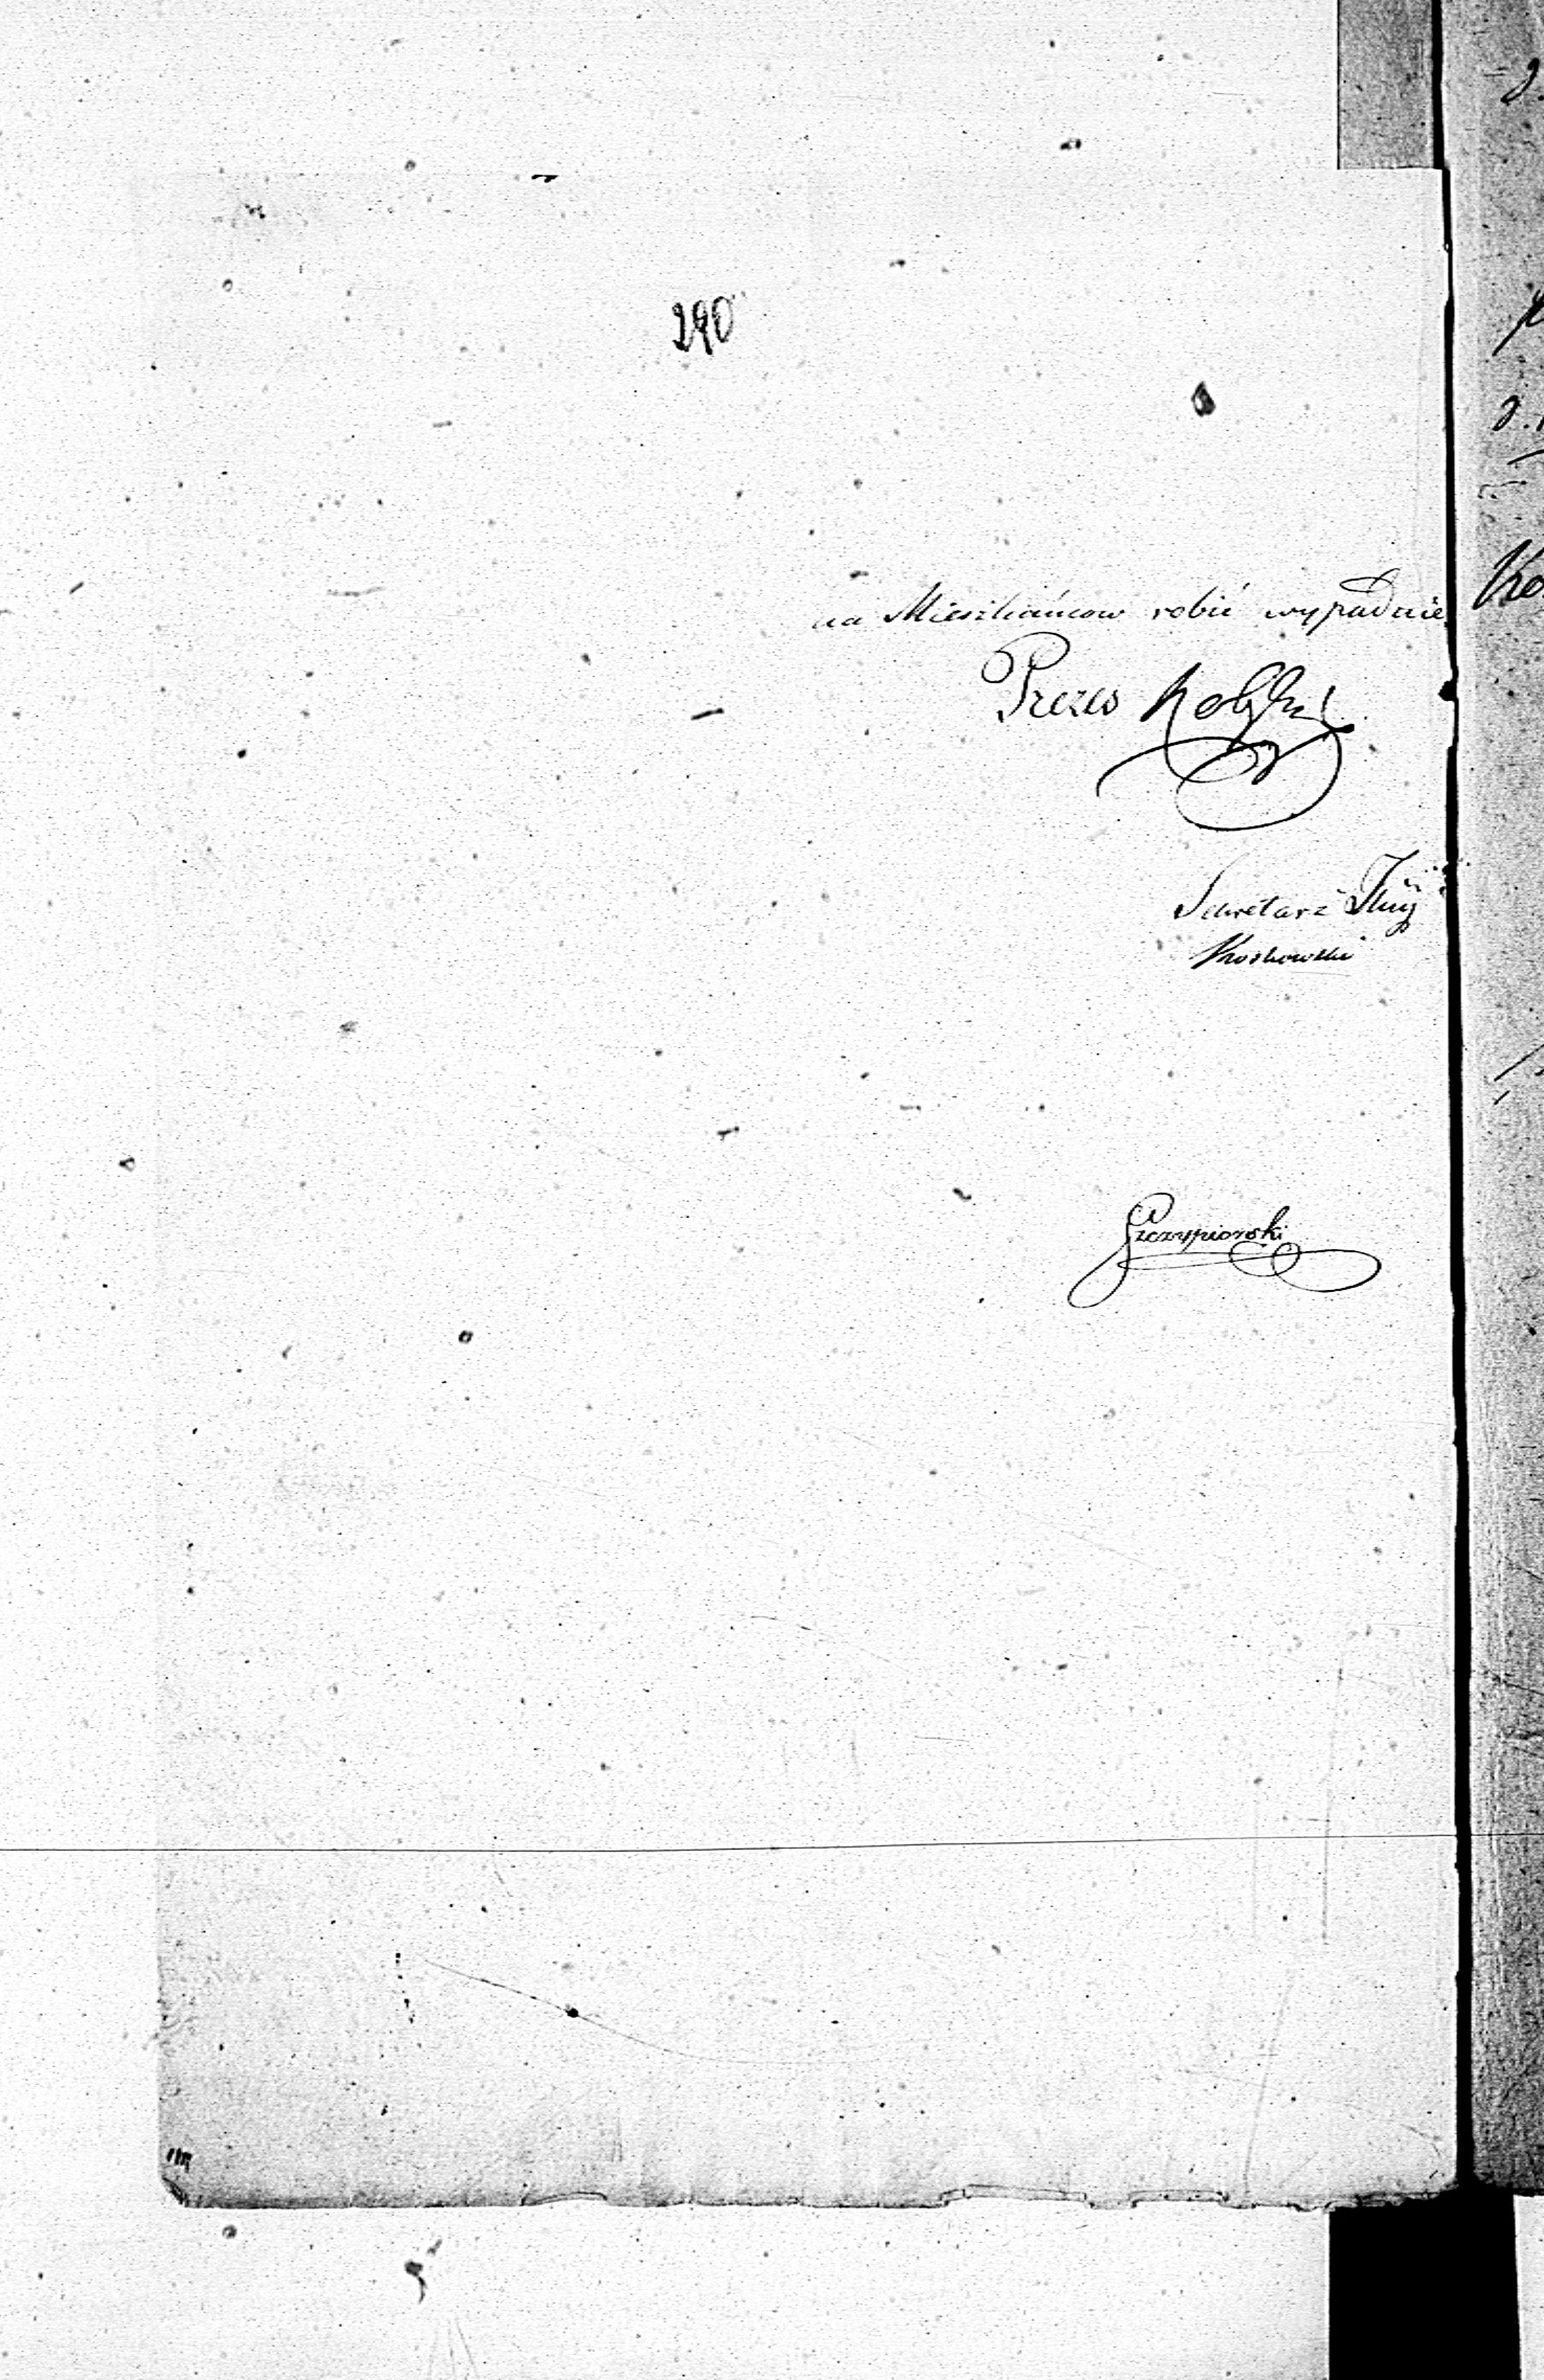 290
na Mieszkańcow robić wypadnie
Prezes
Sekretarz
Koskowski
Szczypiorski